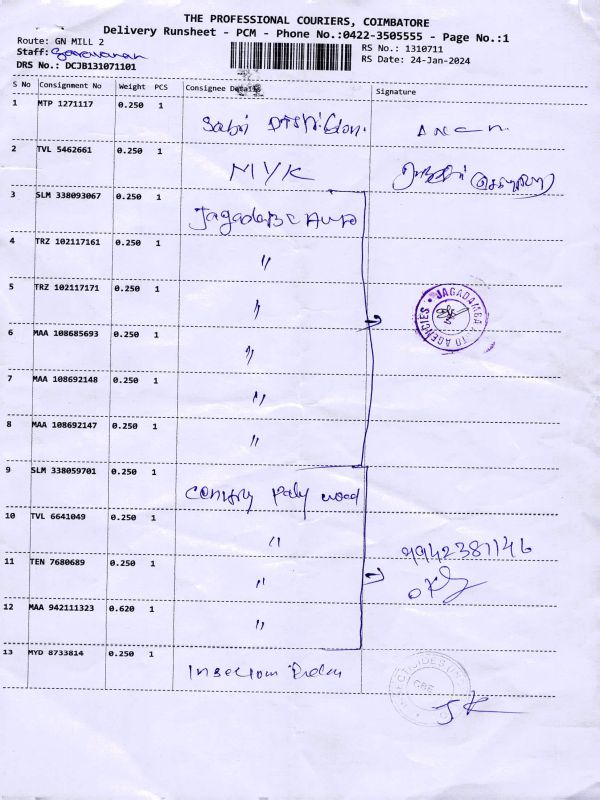 THE PROFESSIONAL COURIERS, COIMBATORE
Delivery Runsheet - PCM - Phone No.:0422-3505555 - Page No.:1
Route: GN MILL 2
RS No.: 1310711
Staff: Saravanan
RS Date: 24-Jan-2024
DRS No.: DCJB131071101
S No Consignment No Weight PCS Consignee Details Signature
1 MTP 1271117 0.250 1
Sabri
2 TVL 5462661 0.250 1
MYK
3 SLM 338093067 0.250 1
Auto
4 TRZ 102117161 0.250 1 "
5 TRZ 102117171 0.250 1 "
JAGADAMBA AUTO AGENCIES
6 MAA 108685693 0.250 1 "
7 MAA 108692148 0.250 1 "
8 MAA 108692147 0.250 1 "
9 SLM 338059701 0.250 1
Century Paly wood
10 TVL 6641049 0.250 1 "
9942381146
11 TEN 7680689 0.250 1 "
12 MAA 942111323 0.620 1 "
13 MYD 8733814 0.250 1
CBE
JK